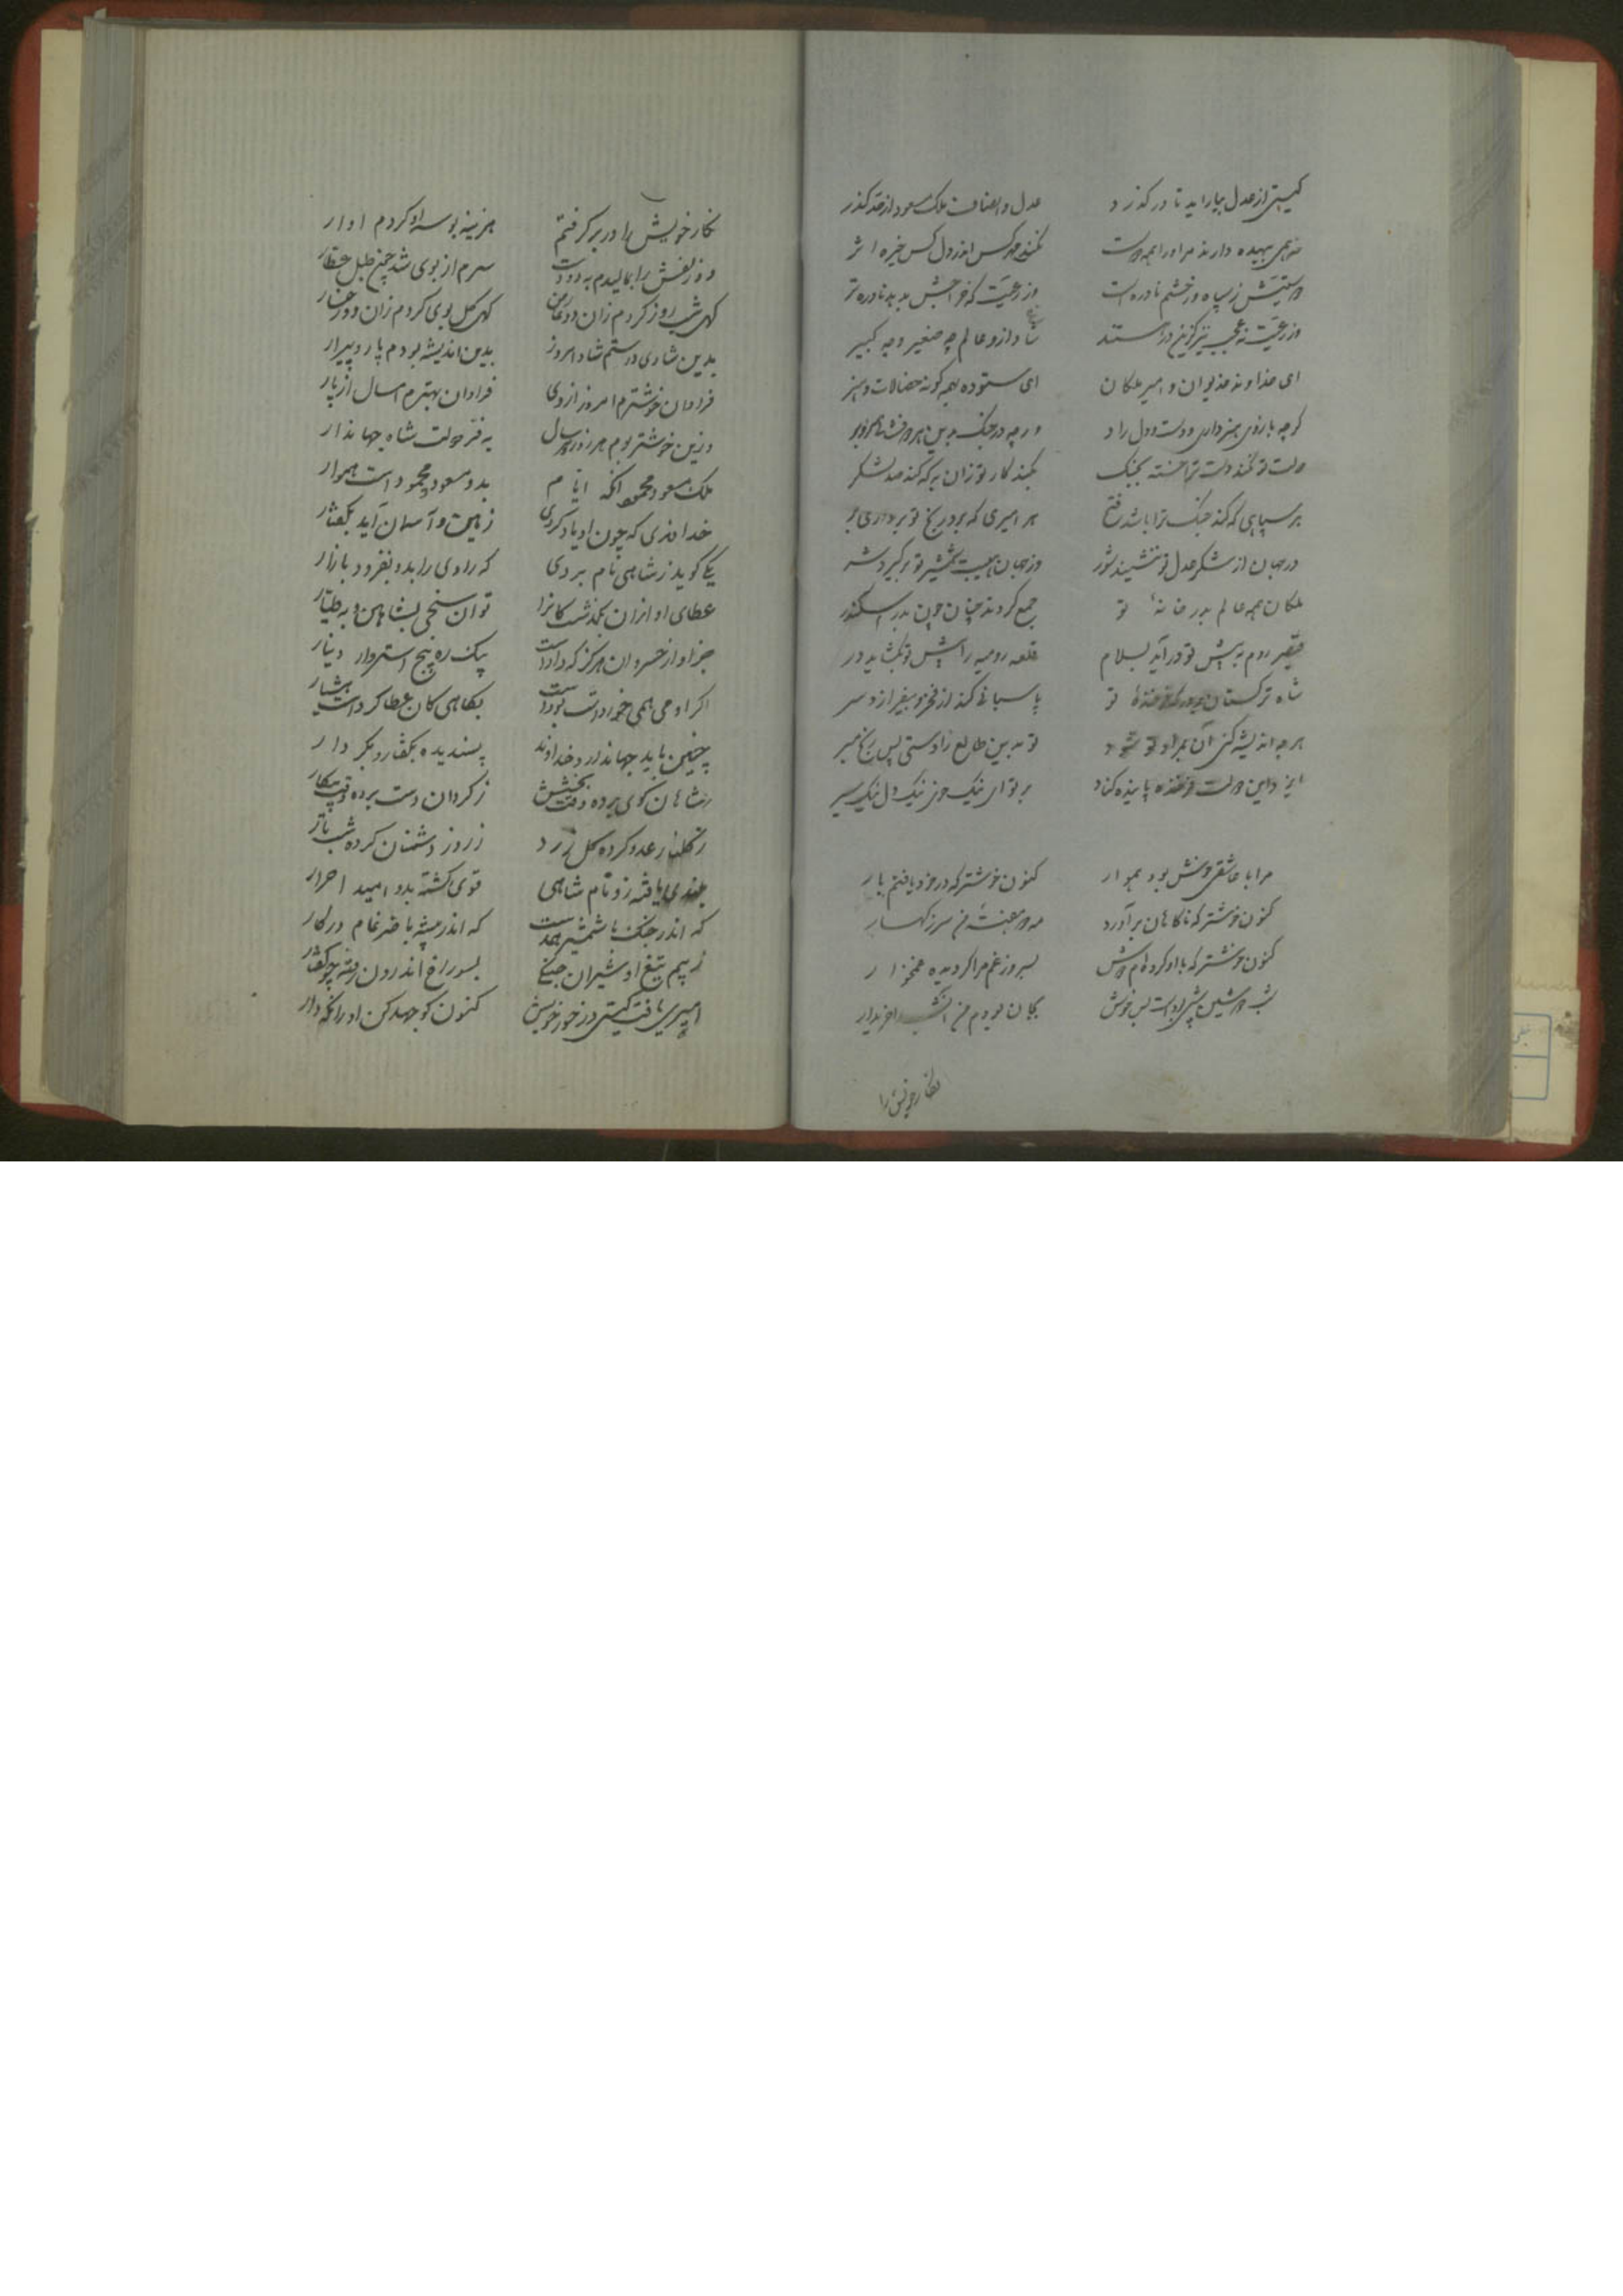 گیتی از عدل بیاراید تا در گذرد عدل و انصاف ملک مسعود از حد گذر
بیهده دارند مر او را همه دوست نکند هر کس اندر دل کس خیره اثر
دوستیش ز سپاه و ز حشم نادره است وز رعیت که خراجش بدهد نادره تر
وز رعیت نه عجب نیز که زین داستند شاد ازو عالم چه صغیر و چه کبیر
ای خداوند خدیوان و امیر ملکان ای ستوده بهمه گونه خصالات و سیر
گرچه بازوی هنر داری و دست و دل راد ور چه در جنگ بدین هر دو
دولت تو نکند دست ترا خسته بجنگ بکند کار تو زان به که کند صد لشکر
بر سپاهی که کند جنگ ترا باشد فتح هر امیری که برد رنج تو برداری بر
در جهان از شکر عدل تو ننشیند شور وز جهان هیبت شمشیر تو برگیرد شر
ملکان همه عالم بدر خانه تو جمع گردند چنان چون بدر اسکندر
قیصر روم به پیش تو درآید بسلام قلعه رومیه را پیش تو بگشاید در
شاه ترکستان بر درگه فرخنده تو پاسبانی کند از فخر و بیفرازد سر
هر چه اندیشه کنی آن بمراد تو شود تو بدین طالع زادستی پس رنج مبر
ایزد این دولت فرخنده پاینده کناد بر تو ای نیک خوی نیک دل نیک سیر
مرا با عاشقی خوش بود هموار کنون خوشتر که در خور یافتم یار
کنون خوشتر که ناگاهان برآورد مه من سر ز کهسار
کنون خوشتر که با او کرده ام دوش بسی روز غم مرا گردیده غمخوار
شب دوشین شبی بودست بس خوش بجان بودم من آن شب را خریدار
نگار خویش را
نگار خویش را در بر گرفتم هزینه بوسه او کردم ادرار
دو زلفش را بمالیدم به دو دست سرم از بوی شد چون طبل عطار
گهی شب روز کردم زان دو عارض گهی گل بوی کردم زان دو رخسار
بدین شادی درستم شاد امروز بدین اندیشه بودم پار و پیرار
فراوان خوشترم امروز از دی فراوان بهترم امسال از پار
وزین خوشتر بوم هر روز و هر سال به فر دولت شاه جهاندار
ملک مسعود محمود آنکه ایام بدو مسعود و محمود است هموار
خداوندی که چون او یاد کردی زمین و آسمان آید بگفتار
یکی گوید ز شاهی نام بردی که رادی را بدو بفزود بازار
عطای او از ان بگذشت کانرا توان سنجی بشاهین و به طیار
جز او از خسروان هرگز که دادست بیک ره پنج استروار دینار
اگر او می همی خوردست بودست بگاهی کان عطا کردست هشیار
چنین باید جهاندار و خداوند پسندیده بگفتار و بکردار
ز شاهان گوی برده وقت بخشش ز گردان دست برده وقت پیکار
ز گلنار عدو کرده گل زرد ز روز دشمنان کرده شب تار
بلندی یافته زو نام شاهی قوی گشته بدو امید احرار
که اندر جنگ با شمشیر هندیست که اندر بیشه با ضرغام در کار
ز بیم تیغ او شیران جنگی بسوراخ اندرون رفته چو کفتار
امیری یافت گیتی در خور خویش کنون گو جهد کن او را نگه دار